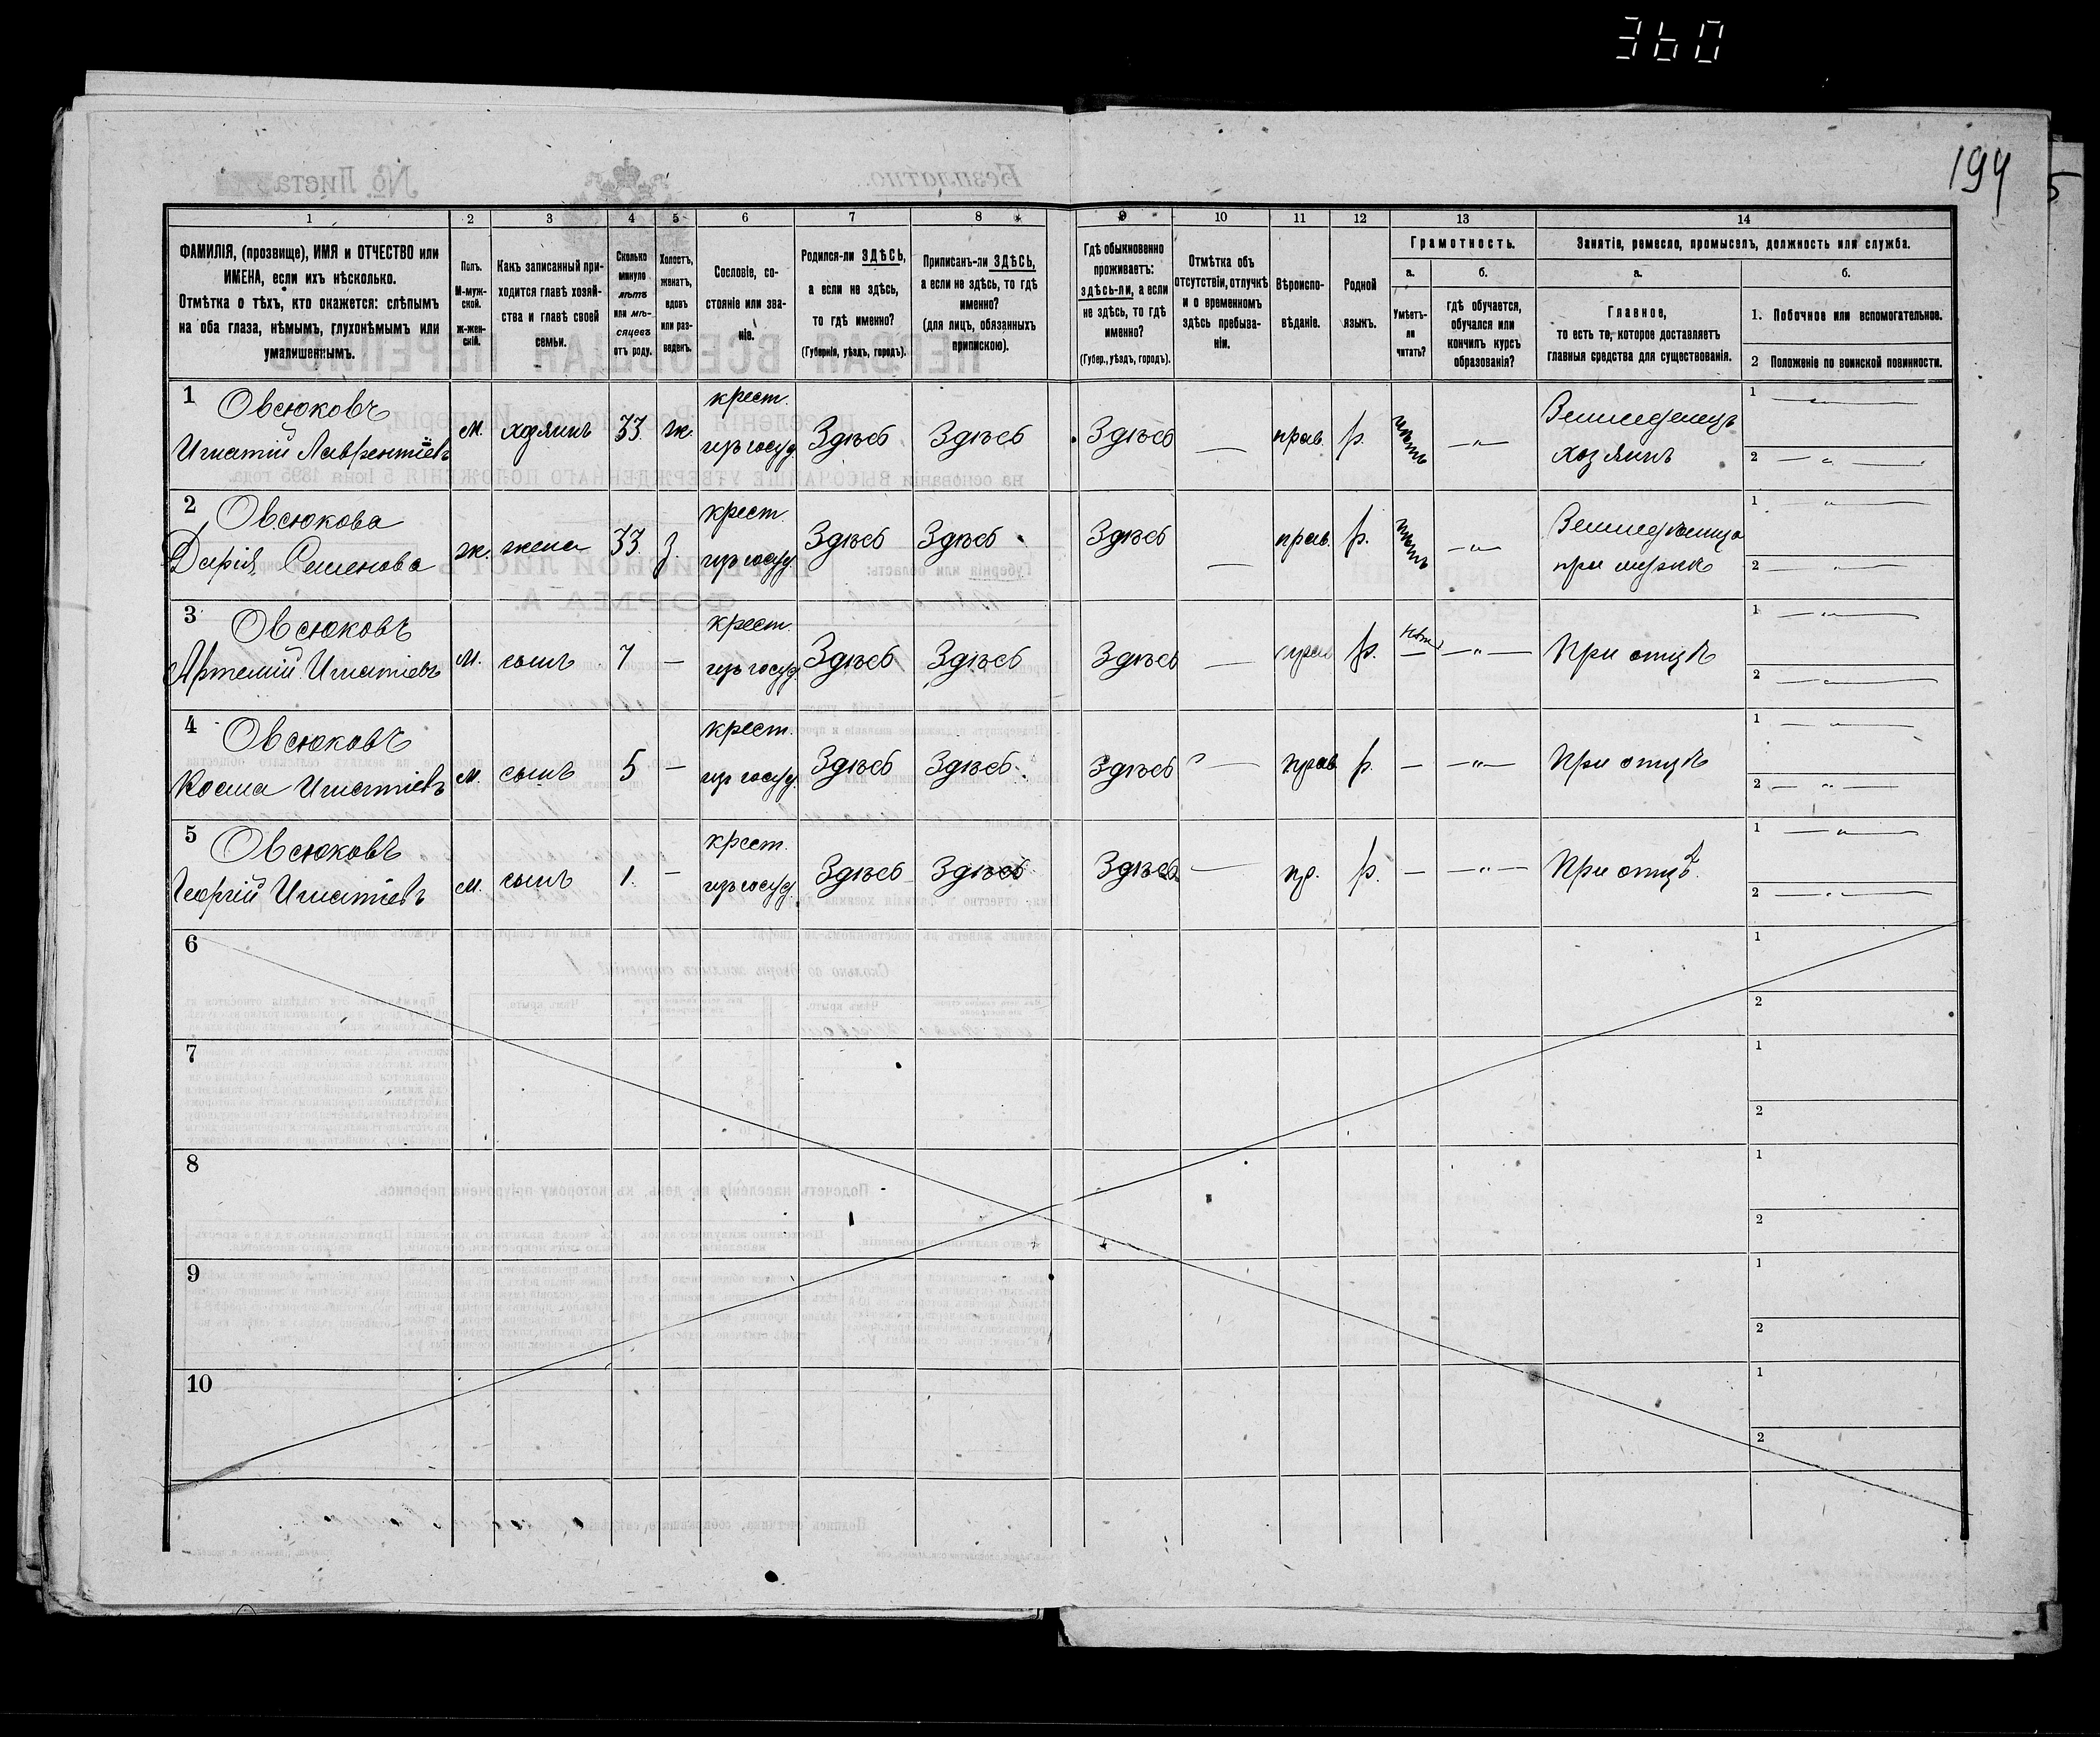 360
194
1 2 3 4 5 6 7 8 9 10 11 12 13 14
ФАМИЛІЯ, (прозвище), ИМЯ и ОТЧЕСТВО или
ИМЕНА, если ихъ нѣсколько.
Отмѣтка о тѣхъ, кто окажется: слѣпымъ
на оба глаза, нѣмымъ, глухонѣмымъ или
умалишеннымъ.
Полъ.
М-муж-
ской.
ж-жен-
скій.
Какъ записанный при-
ходится главѣ хозяй-
ства и главѣ своей
семьи.
Сколько
минуло
лѣтъ
или мѣ-
сяцевъ
отъ роду.
Холостъ,
женатъ,
вдовъ
или раз-
веденъ.
Сословіе, со-
стояніе или зва-
ніе.
Родился-ли ЗДѢСЬ,
а если не здѣсь,
то гдѣ именно?
(Губернія, уѣздъ, городъ).
Приписанъ-ли ЗДѢСЬ,
а если не здѣсь, то гдѣ
именно?
(для лицъ, обязанныхъ
припискою).
Гдѣ обыкновенно
проживаетъ:
здѣсь-ли, а если
не здѣсь, то гдѣ
именно?
(Губер., уѣздъ, городъ).
Отмѣтка объ
отсутствіи, отлучкѣ
и о временномъ
здѣсь пребыва-
ніи.
Вѣроиспо-
вѣданіе.
Родной
языкъ.
Грамотность.
а.
Умѣетъ-
ли
читать?
б.
гдѣ обучается,
обучался или
кончилъ курсъ
образованія?
Занятіе, ремесло, промыселъ, должность или служба.
а.
Главное,
то есть то, которое доставляетъ
главныя средства для существованія.
б.
1. Побочное или вспомогательное.
2 Положеніе по воинской повинности.
1 Овсюковъ
Игнатій Лаврентіевъ
м. хозяинъ 33 ж. крест. изъ госуд. Здѣсь Здѣсь Здѣсь — прав. р. нѣтъ —"— Земледѣлецъ хозяинъ
1 —"—
2 —"—
2 Овсюкова
Дарія Семенова
ж. жена 33 з. крест. изъ госуд. Здѣсь Здѣсь Здѣсь — прав. р. нѣтъ —"— при мужѣ
1 —"—
2 —"—
3 Овсюковъ
Артемій Игнатіевъ
м. сынъ 7 — крест. изъ госуд. Здѣсь Здѣсь Здѣсь — прав р. нѣтъ —"— При отцѣ
1 —"—
2 —"—
4 Овсюковъ
Косма Игнатіевъ
м. сынъ 5 — крест. изъ госуд. Здѣсь Здѣсь Здѣсь — прав р. — —"— При отцѣ
1 —"—
2 —"—
5 Овсюковъ
Георгій Игнатіевъ
м. сынъ 1. — крест. изъ госуд. Здѣсь Здѣсь Здѣсь — пр. р. — —"— При отцѣ.
1 —"—
2 —"—
6
1
2
7
1
2
8
1
2
9
1
2
10
1
2